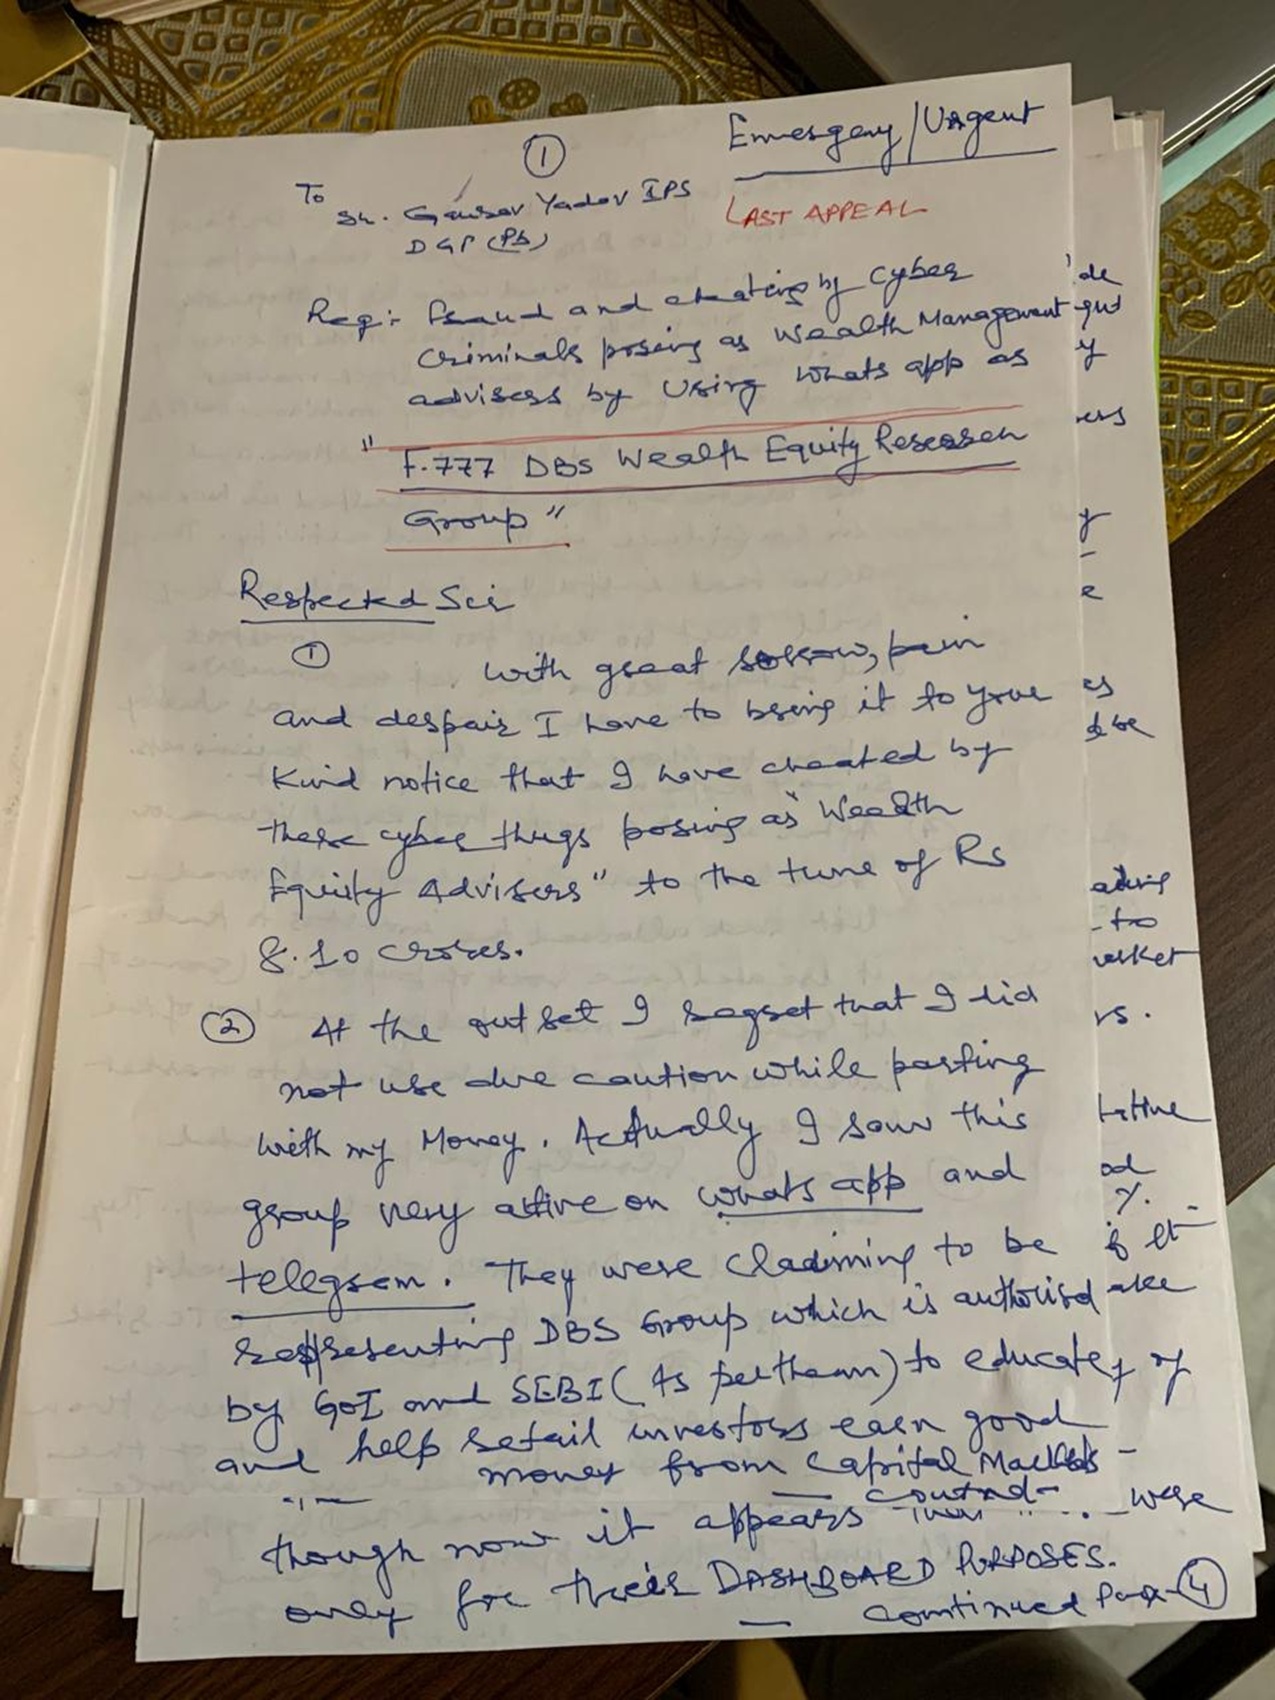 ①
Emmesgeny/Urgent
LAST APPEAL
To
Sh. Gaurav Yadav IPS
DGP (Pb)
Reg:- Fraud and cheating by Cyber
Criminals posing as Wealth Management
advisers by Using Whats app as
"F.777 DBS Wealth Equity Research
Group"
Respected Sir
① With great sorrow, pain
and despair I have to bring it to your
Kind notice that I have cheated by
these cyber thugs posing as "Wealth
Equity Advisers" to the tune of Rs
8.10 crores.
② At the outset I regret that I did
not use due caution while parting
with my Money. Actually I saw this
group very active on whats app and
telegram. They were Claiming to be
representing DBS Group which is authorised
by GoI and SEBI (As per them) to educate
and help retail investors earn good
money from Capital Markets
— contnd-
though now it appears
were
only for their DASHBOARD PURPOSES.
— Continued Page-④
de
y
y
e
es
to
rs.
od
%.
of